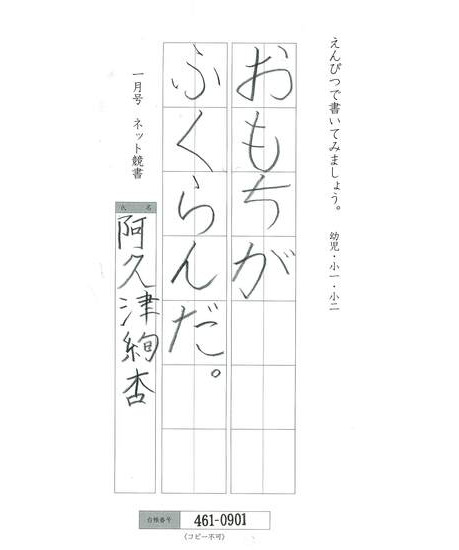 えんぴつで書いてみましょう。　幼児・小一・小二
おもちが
ふくらんだ。
一月号　ネット競書
氏名
阿久津絢杏
台帳番号 461-0901
(コピー不可)